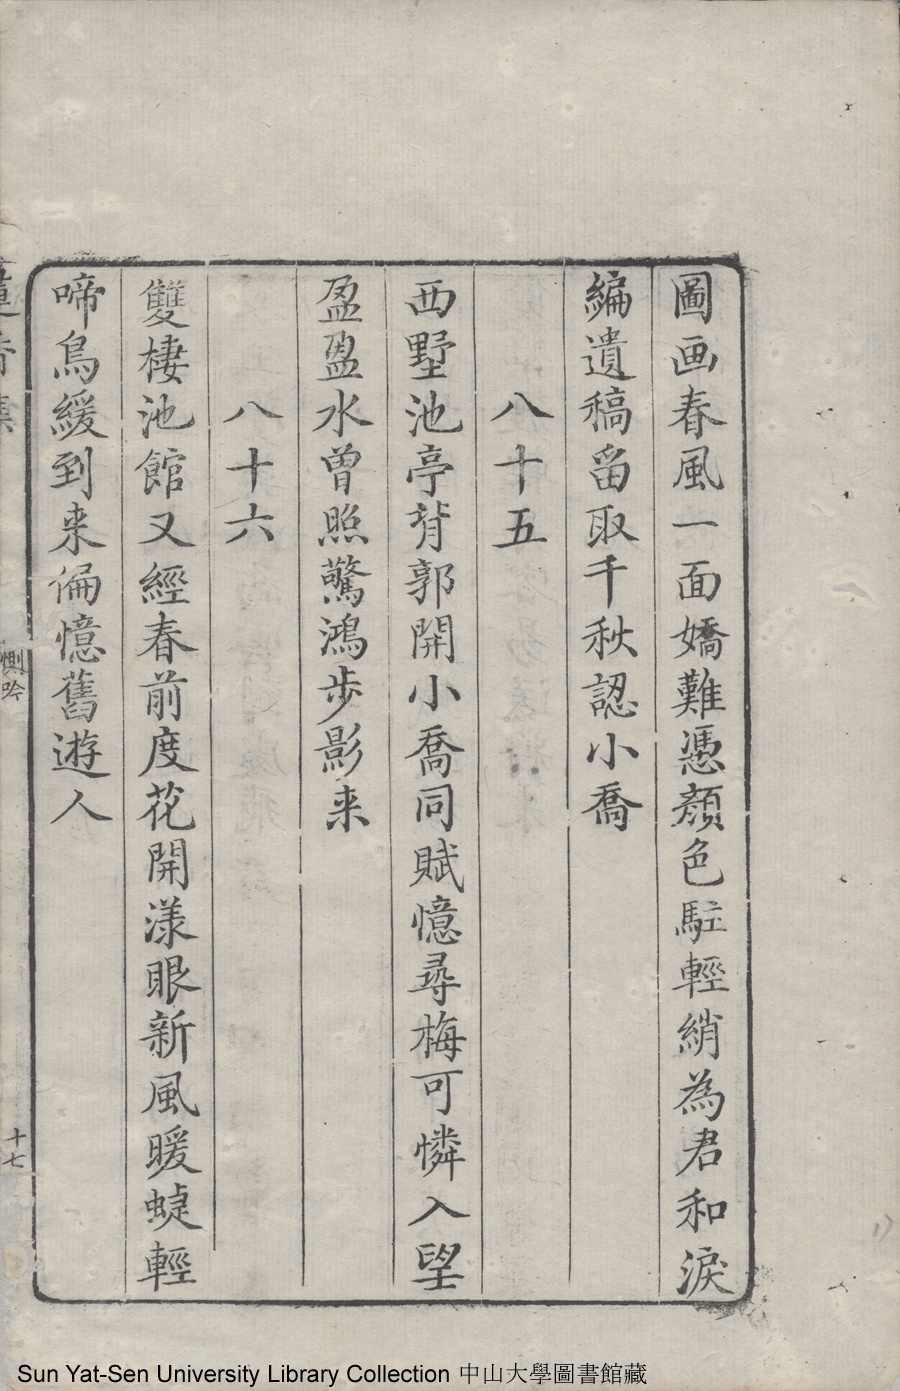 圖画春風一面嬌難憑顏色駐輕綃為君和淚
編遺稿畱取千秋認小喬
八十五
西墅池亭背郭開小喬同賦憶尋梅可憐入望
盈盈水曾照驚鴻步影来
八十六
雙棲池館又經春前度花開漾眼新風暖蜨輕
啼鳥緩到来偏憶舊遊人
惻吟
十七
Sun Yat-Sen University Library Collection 中山大學圖書館藏